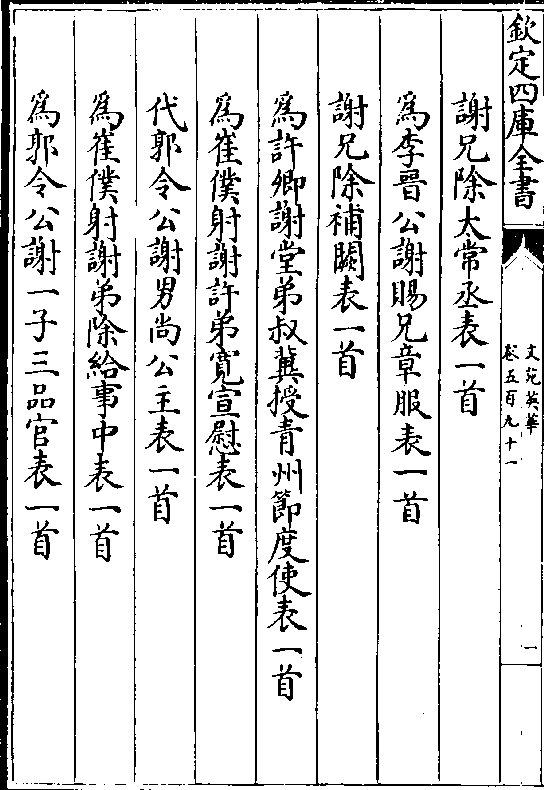 欽定四庫全書
文苑英華
卷五百九十一
一
謝兄除太常丞表一首
為李晉公謝賜兄章服表一首
謝兄除補闕表一首
為許卿謝堂弟叔冀授青州節度使表一首
為崔僕射謝許弟寛宣慰表一首
代郭令公謝男尚公主表一首
為崔僕射謝弟除給事中表一首
為郭令公謝一子三品官表一首